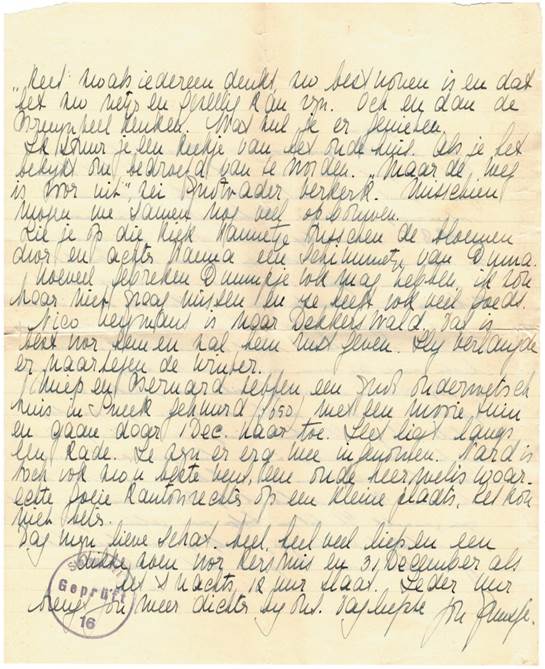 niet zoals iedereen denkt, zo best wonen is en dat
het zoo netjes en gezellig kan zijn. Och en dan de
keuken. Wat zul je er genieten.
Ik stuur je een kiekje van het oude huis. Als je het
bekijkt om bedroefd van te worden. "Maar de weg
is voor uit", zei Grootvader Verkerk. Misschien
mogen we samen nog veel opbouwen.
Zie je op die kiek Hannetje tusschen de bloemen
door en achter Hanna een schimmetje van Dunna.
Hoeveel gebreken Dunnetje ook mag hebben, ik zou
haar niet graag missen en ze heeft ook veel goeds.
Nico Heymans is naar Dekkerswald, dat is
best voor hem en zal hem rust geven. Hij verlangde
er naar tegen de winter.
Miep en Bernard hebben een oud onderwetsch
huis in Sneek gehuurd f 650 met een mooie tuin
en gaan daar 1 Dec. naar toe. Het ligt langs
een kade. Ze zijn er erg mee ingenomen. Nard is
toch ook zoo'n beste vent, een oude heer, welis waar.
echte goeie kantonrechter op een kleine plaats. Het kon
niet beter.
Dag mijn lieve schat. Heel, heel veel liefs en een
dikke zoen voor Kerstmis en 31 December als
het 's nachts 12 uur slaat. Ieder uur
brengt jou meer dichter bij ons. Dag liefste jou
Geprüft
16